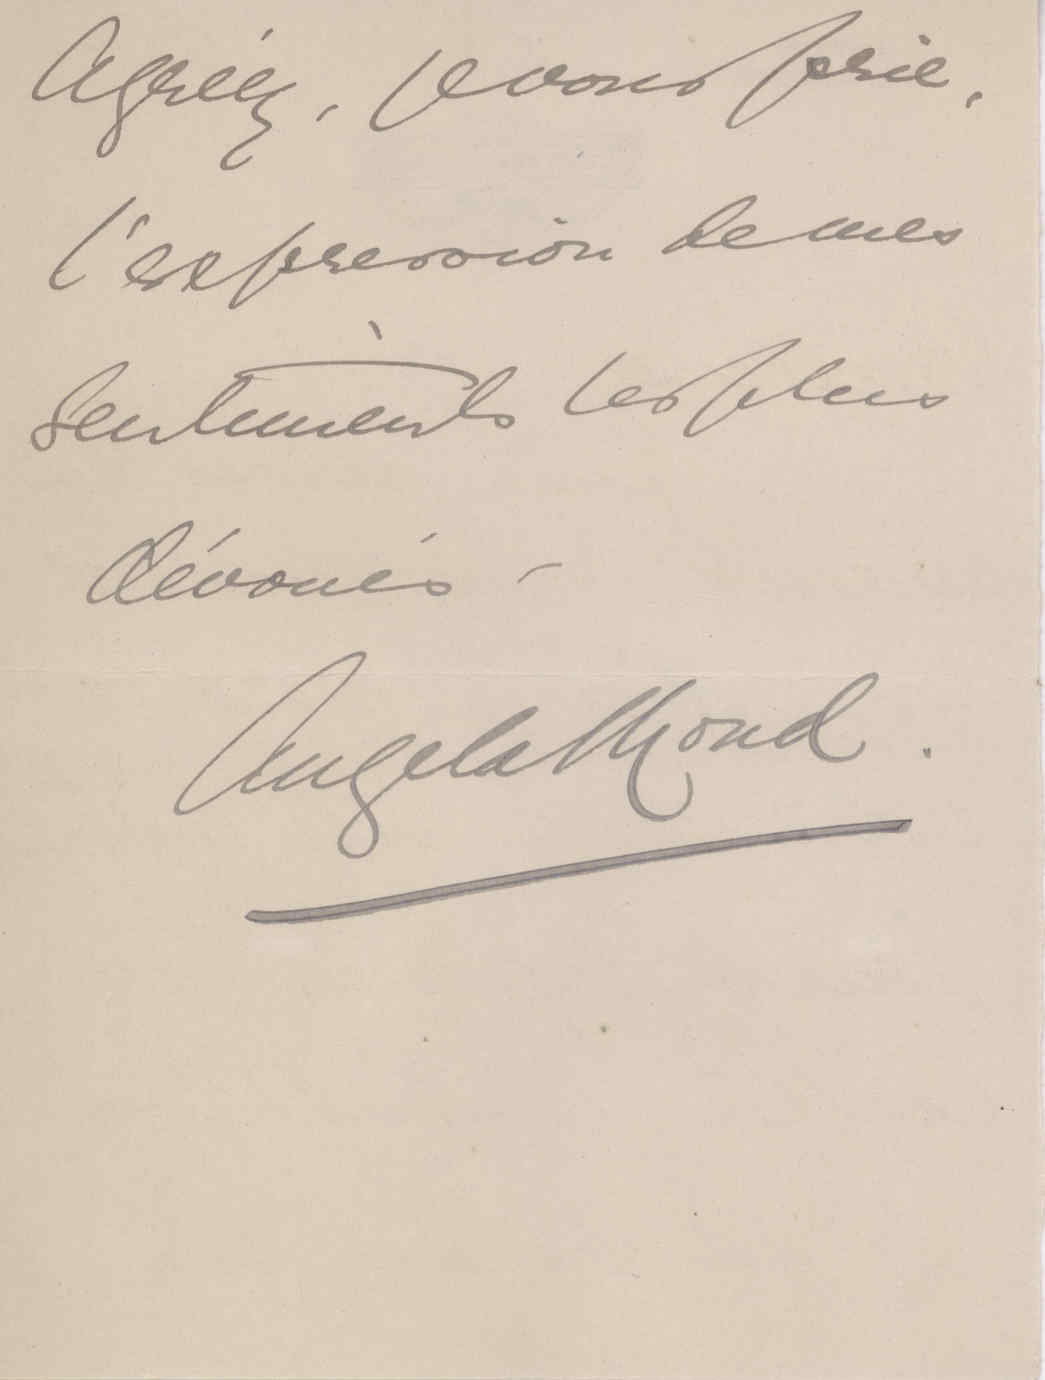 Agréez, je vous prie,
l'expression de mes
sentiments les plus
dévoués -
Angela Mond.